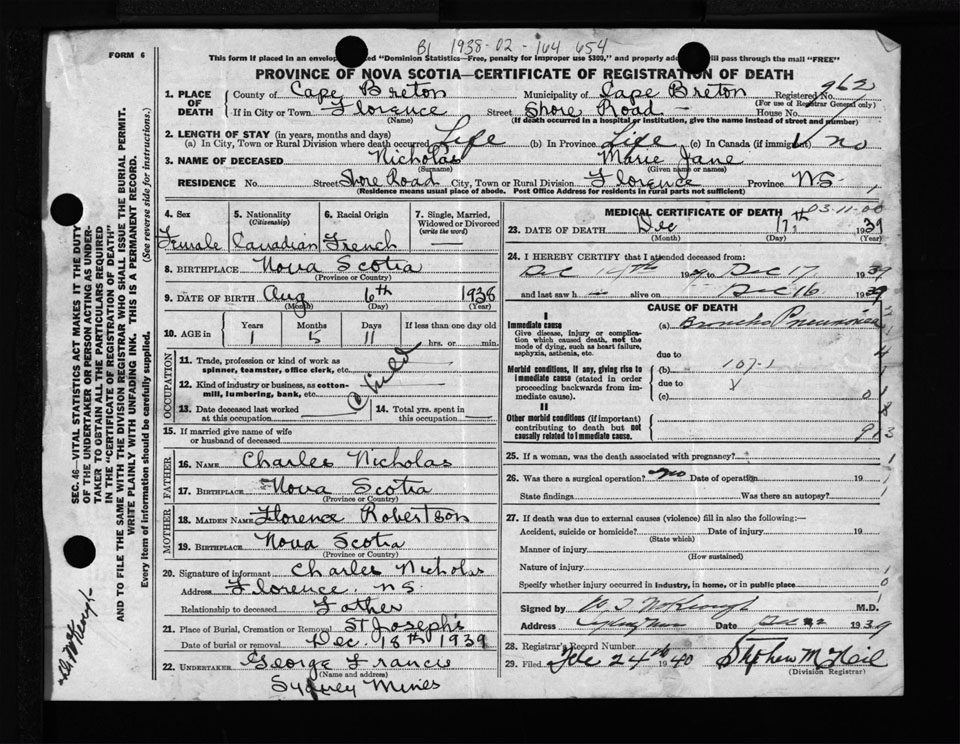 FORM 6
B1 1938-02-164 654
This form if placed in an envelope marked "Dominion Statistics—Free, penalty for improper use $300," and properly addressed will pass through the mail "FREE"
PROVINCE OF NOVA SCOTIA—CERTIFICATE OF REGISTRATION OF DEATH
1. PLACE OF DEATH
County of Cape Breton Municipality of Cape Breton Registered No. 962
(For use of Registrar General only)
If in City or Town Florence Street Shore Road — House No.
(Name) (If death occurred in a hospital or institution, give the name instead of street and number)
2. LENGTH OF STAY (in years, months and days)
(a) In City, Town or Rural Division where death occurred Life (b) In Province Life (c) In Canada (if immigrant) no
3. NAME OF DECEASED Nicholas Marie Jane
(Surname) (Given name or names)
RESIDENCE No. Street Shore Road City, Town or Rural Division Florence Province N.S.
(Residence means usual place of abode. Post Office Address for residents in rural parts not sufficient)
4. Sex Female
5. Nationality (Citizenship) Canadian
6. Racial Origin French
7. Single, Married, Widowed or Divorced (write the word) —
8. BIRTHPLACE Nova Scotia
(Province or Country)
9. DATE OF BIRTH Aug 6th 1938
(Month) (Day) (Year)
10. AGE in Years Months Days If less than one day old
1 5 11 hrs. or min.
OCCUPATION
11. Trade, profession or kind of work as spinner, teamster, office clerk, etc.
Child
12. Kind of industry or business, as cotton-mill, lumbering, bank, etc.
13. Date deceased last worked at this occupation
14. Total yrs. spent in this occupation
15. If married give name of wife or husband of deceased
FATHER
16. NAME Charles Nicholas
17. BIRTHPLACE Nova Scotia
(Province or Country)
MOTHER
18. MAIDEN NAME Florence Robertson
19. BIRTHPLACE Nova Scotia
(Province or Country)
20. Signature of informant Charles Nicholas
Address Florence N.S.
Relationship to deceased Father
21. Place of Burial, Cremation or Removal St Josephs
Date of burial or removal Dec. 18th 1939
22. UNDERTAKER George Francis
(Name and address)
Sydney Mines
MEDICAL CERTIFICATE OF DEATH
03-11-00
23. DATE OF DEATH Dec 17th 1939
(Month) (Day) (Year)
24. I HEREBY CERTIFY that I attended deceased from:
Dec 14th 1939 to Dec 17 1939
and last saw h alive on Dec 16 1939
CAUSE OF DEATH
I
Immediate cause
Give disease, injury or complication which caused death, not the mode of dying, such as heart failure, asphyxia, asthenia, etc.
(a) Broncho Pneumonia
due to
Morbid conditions, if any, giving rise to immediate cause (stated in order proceeding backwards from immediate cause).
(b) 107-1
due to
(c)
II
Other morbid conditions (if important) contributing to death but not causally related to immediate cause.
25. If a woman, was the death associated with pregnancy?
26. Was there a surgical operation? no Date of operation 19
State findings Was there an autopsy?
27. If death was due to external causes (violence) fill in also the following:—
Accident, suicide or homicide? Date of injury 19
(State which)
Manner of injury
(How sustained)
Nature of injury
Specify whether injury occurred in industry, in home, or in public place
Signed by M.D.
Address Date Dec 22 1939
28. Registrar's Record Number
29. Filed 24th 1940 Stephen McNeil
(Division Registrar)
SEC. 46—VITAL STATISTICS ACT MAKES IT THE DUTY
OF THE UNDERTAKER OR PERSON ACTING AS UNDER-
TAKER TO OBTAIN ALL THE PARTICULARS REQUIRED
IN THE "CERTIFICATE OF REGISTRATION OF DEATH"
AND TO FILE THE SAME WITH THE DIVISION REGISTRAR WHO SHALL ISSUE THE BURIAL PERMIT.
WRITE PLAINLY WITH UNFADING INK. THIS IS A PERMANENT RECORD.
Every item of information should be carefully supplied. (See reverse side for instructions.)